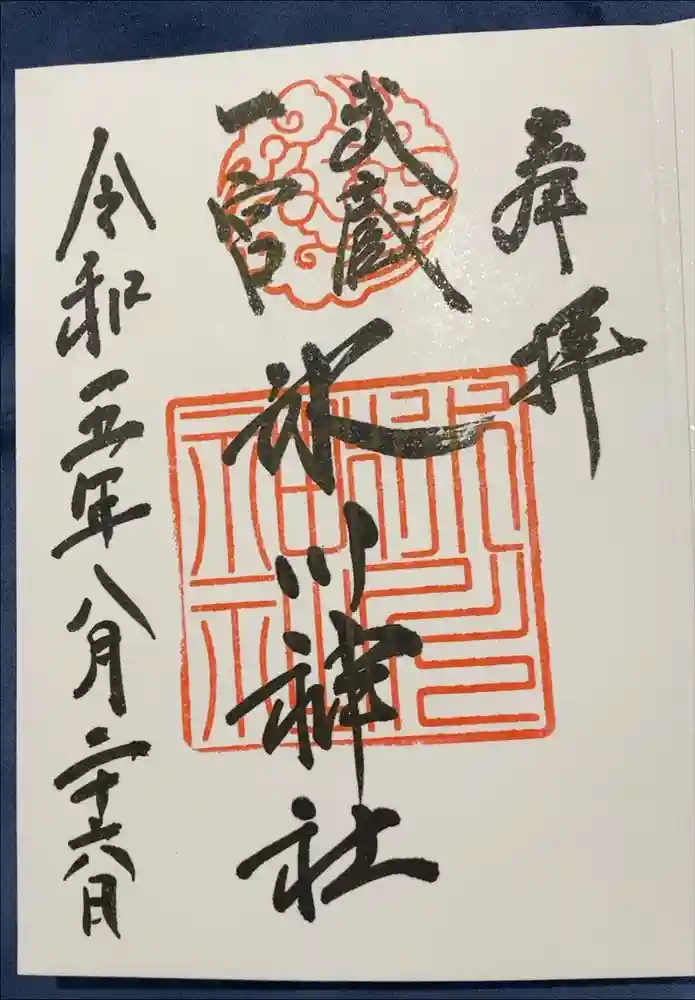 奉拝
武蔵
一宮
氷川神社
令和五年八月二十六日